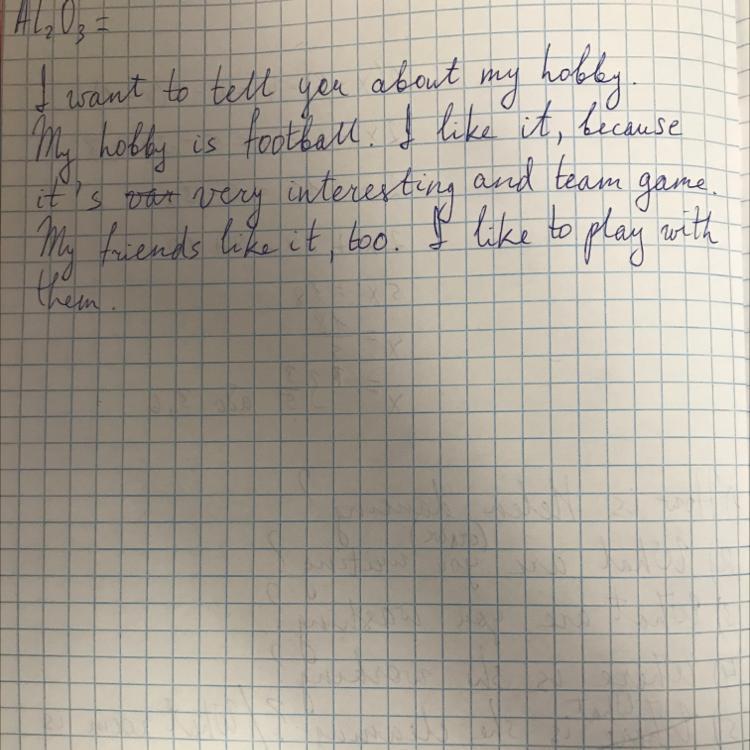 Al₂O₃ =
I want to tell you about my hobby.
My hobby is football. I like it, because
it's very interesting and team game.
My friends like it, too. I like to play with
them.